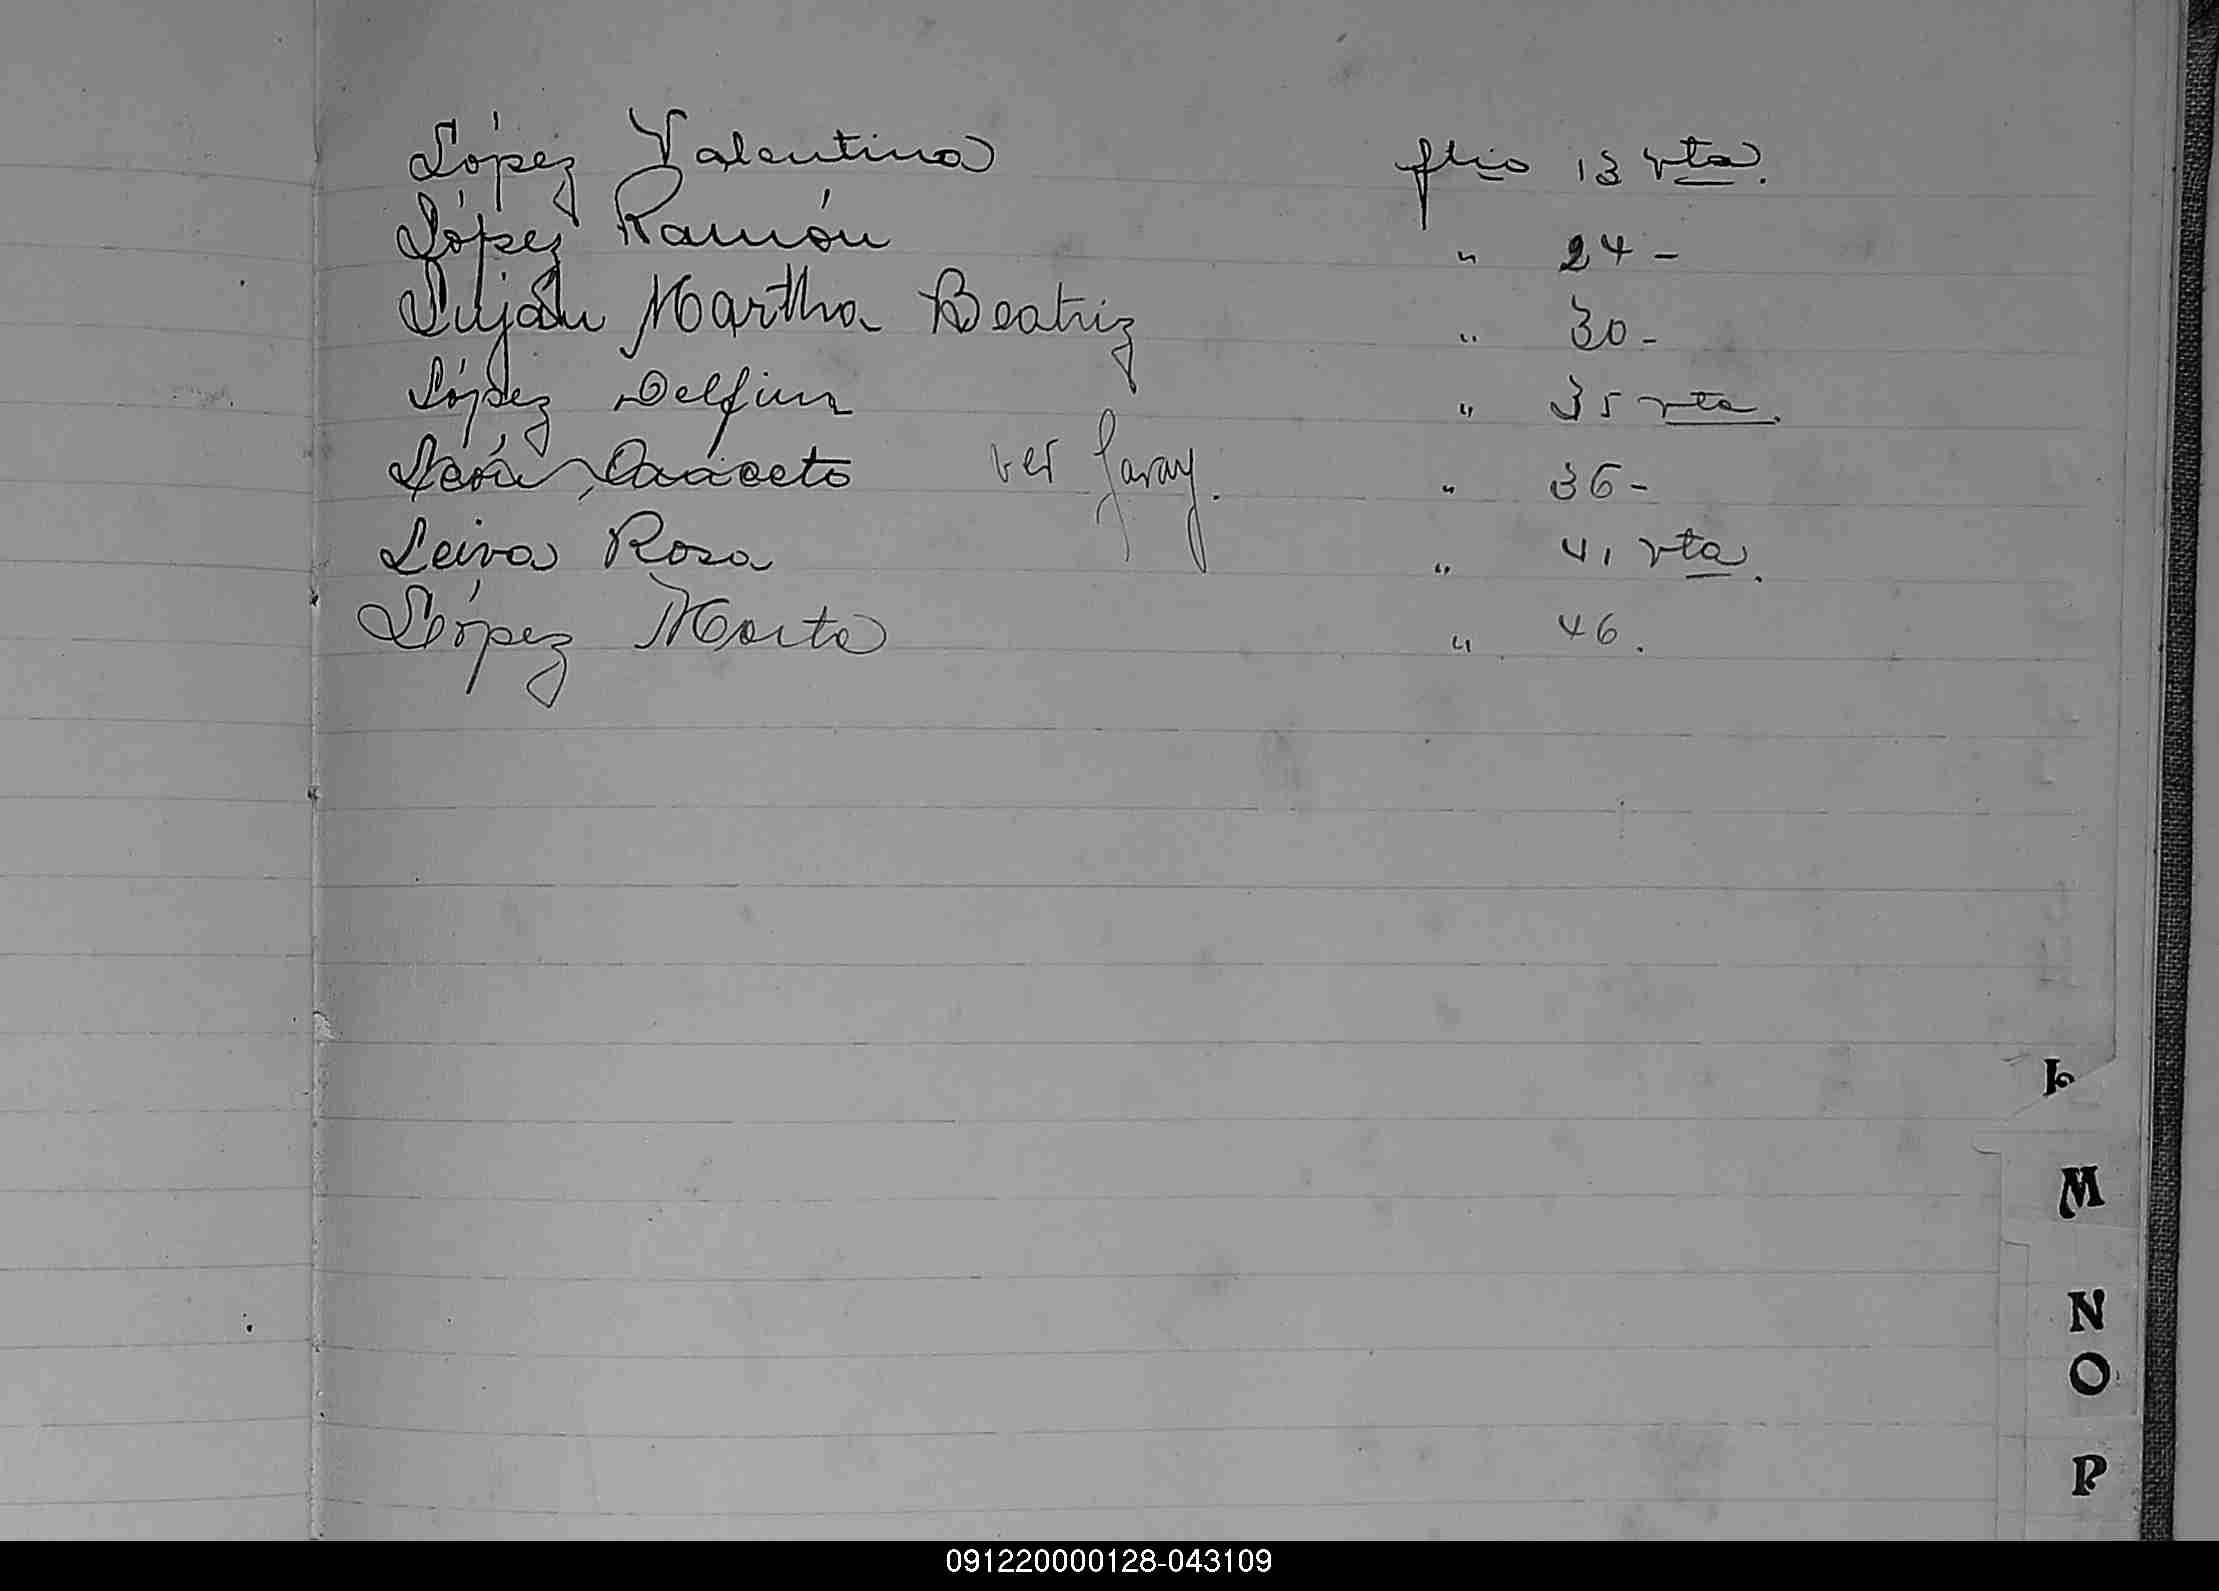 López Valentina flio 13 vta.
López Ramón " 24 -
Luján Martha Beatriz " 30 -
López Delfin " 35 vta.
León, Anacleto ver Garay. " 36 -
Leiva Rosa " 41 vta.
López Marta " 46.
L
M
N
O
P
091220000128-043109